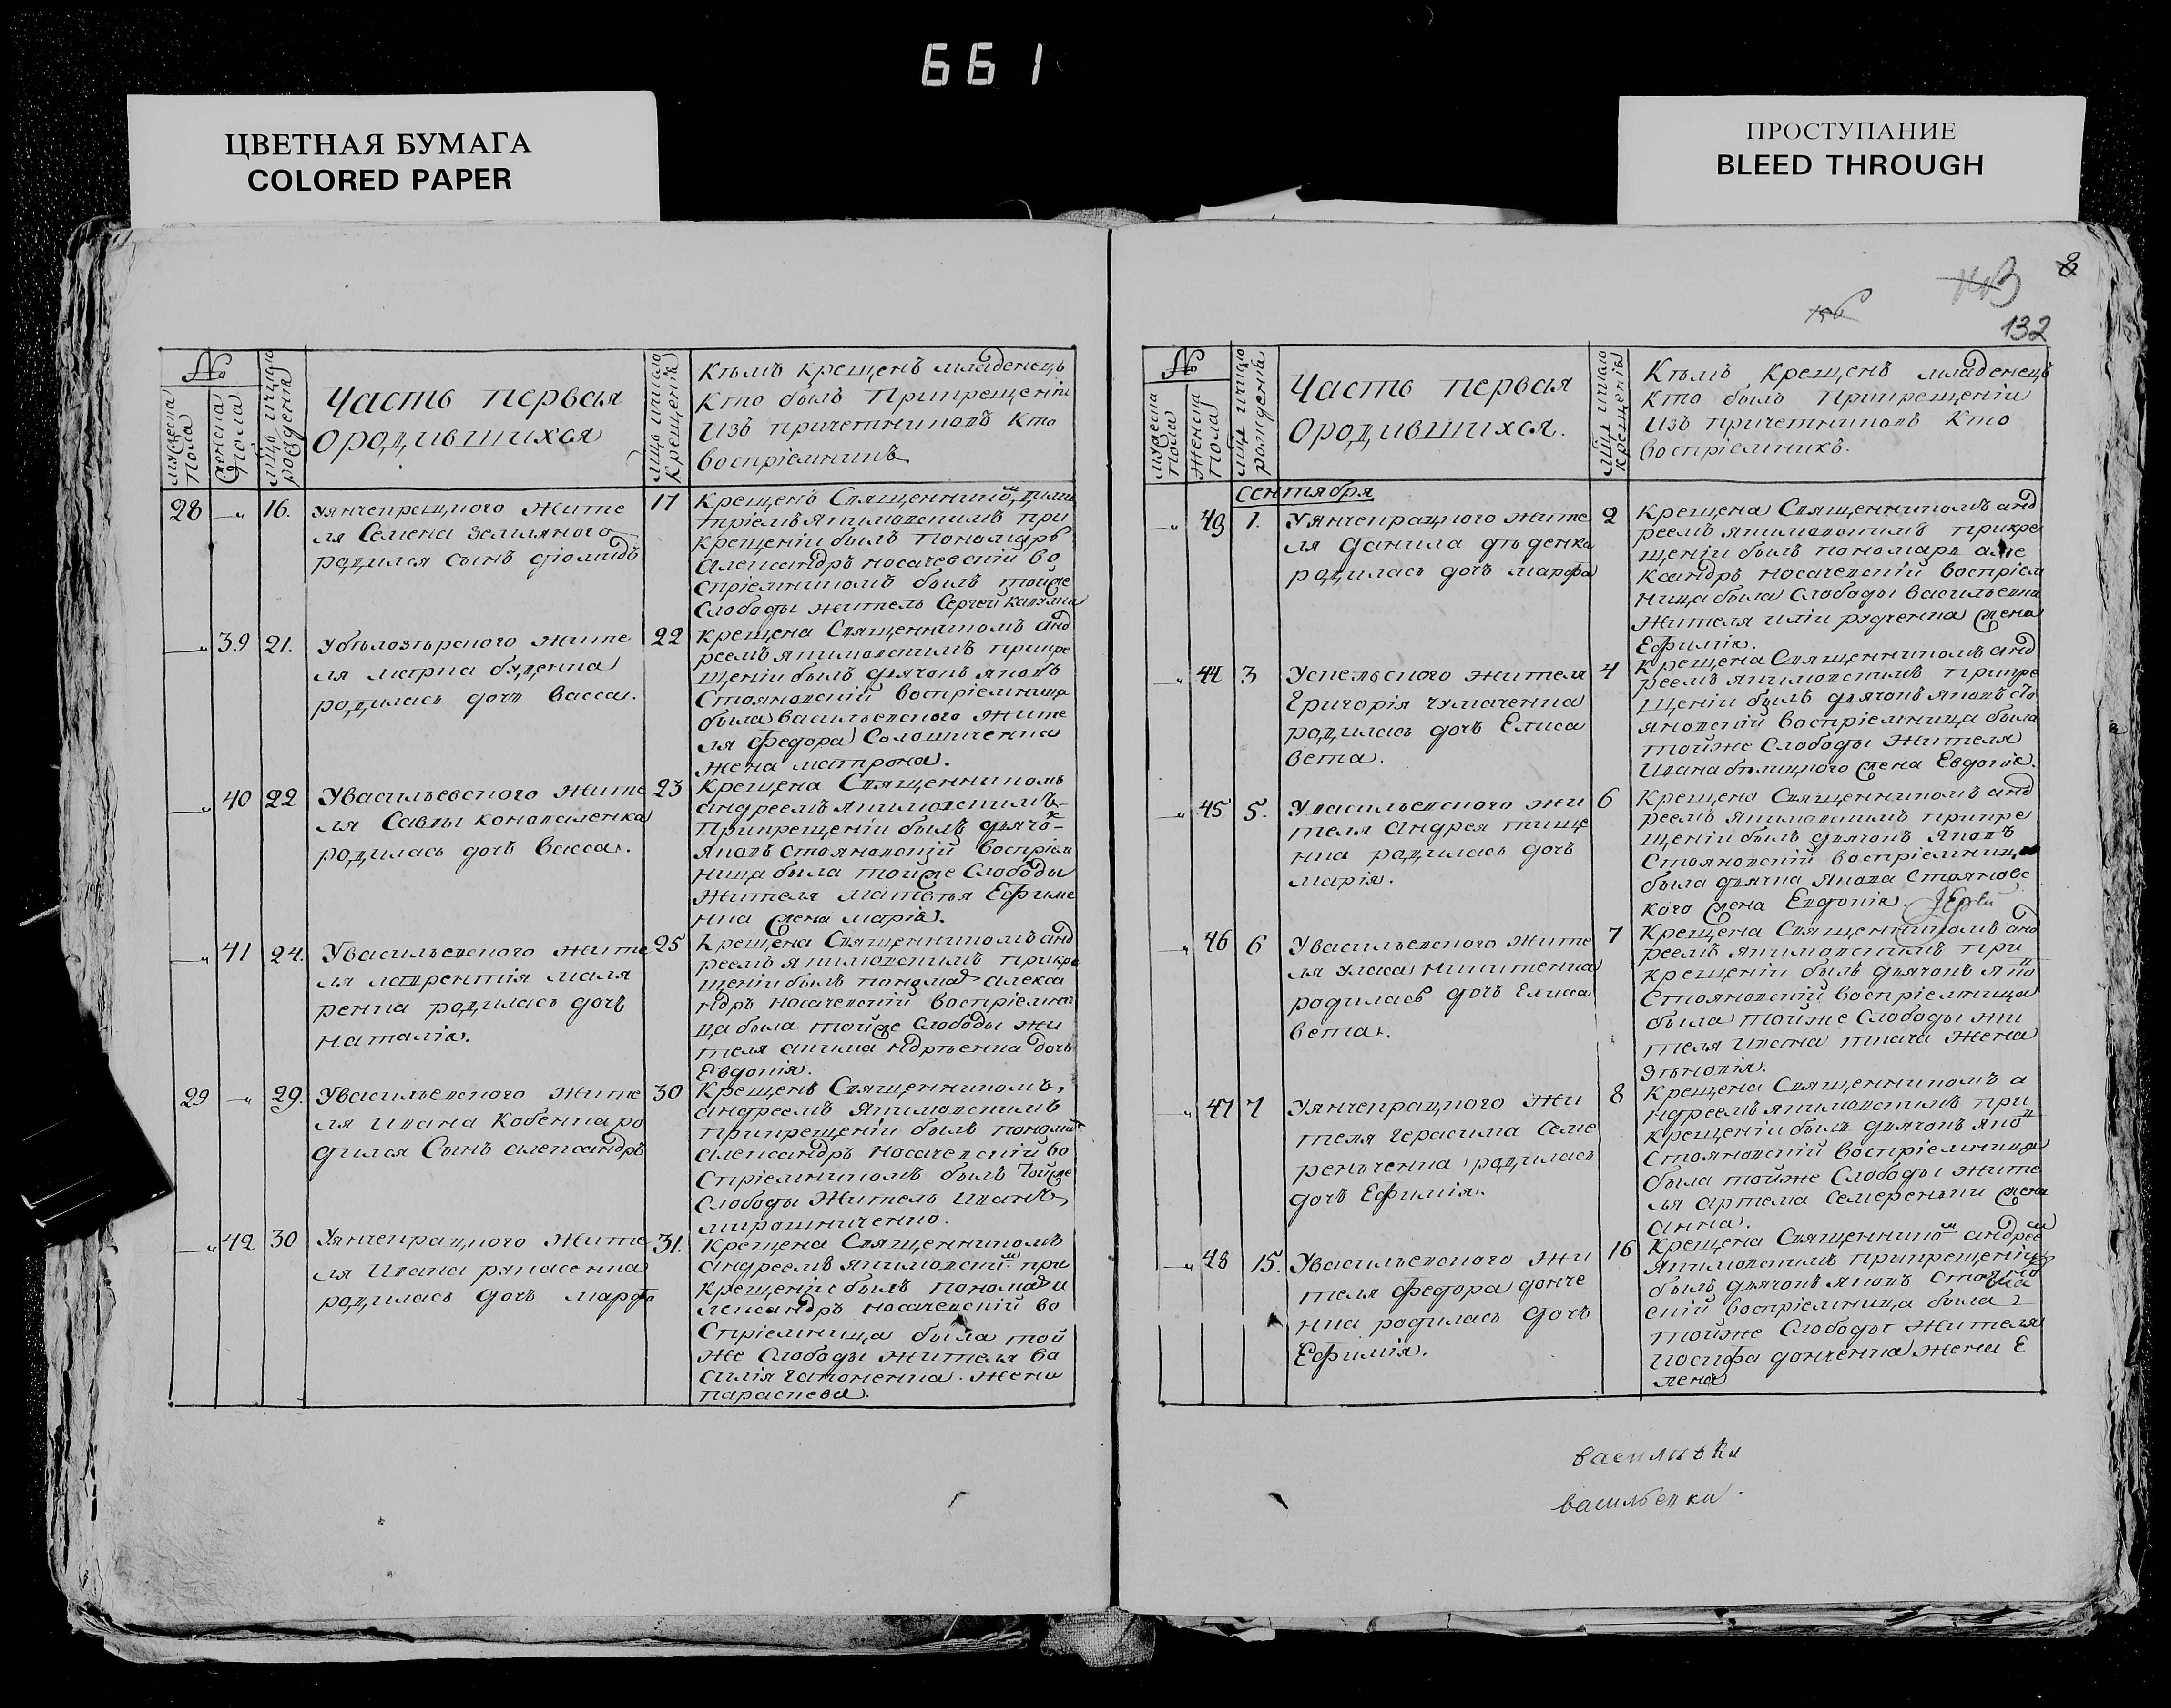 661
ЦВЕТНАЯ БУМАГА
COLORED PAPER
ПРОСТУПАНИЕ
BLEED THROUGH
8
132
№
мужеска пола
женска пола
рождения
Часть первая
ородившихся
крещения
Кѣмъ крещенъ младенець
кто былъ Прикрещеніи
изъ причетниковъ кто
воспріемникъ
28
16.
жите
ля Семена Земляного
родился сынъ діомидъ
17
Крещенъ Священнико
при
крещеніи былъ пономарь
александръ носачевскій во
спріемникомъ былъ тойже
Слободы житель Сергей
39
21.
Убѣлозѣрского жите
ля
родилась дочь васса.
22
крещена Священникомъ анд
реемъ якимовскимъ прикре
щеніи былъ дьячокъ яковъ
Стояновскій воспріемница
была васильевского жите
ля федора
жена матрона.
40
22
Увасильевского жите
ля Саввы коноваленка
родилась дочь васса.
23
крещена Священникомъ
андреемъ якимовскимъ
Прикрещеніи былъ дьячо
яковъ стояновскій воспріем
ница была тойже Слободы
жителя матвѣя Ефиме
нка жена марія.
41
24.
Увасильевского жите
ля лаврентія маля
ренка родилась дочь
наталія.
25
Крещена Священникомъ анд
реемъ якимовскимъ прикре
щеніи былъ понома алекса
ндръ носачевскій воспріемни
ца была тойже Слободы жи
теля
дочь
Евдокія.
29
29.
Увасильевского жите
ля ивана Кобенка ро
дился Сынъ александръ
30
Крещенъ Священникомъ
андреемъ якимовскимъ
прикрещеніи былъ поном
александръ носачевскій во
спріемникомъ былъ тойже
Слободы житель иванъ
мирошниченко.
42
30
жите
ля ивана
родилась дочь марфа
31.
Крещена Священникомъ
андреемъ якимовски при
крещеніи былъ понома а
лександръ носачевскій во
спріемница была той
же Слободы жителя ва
силія гапоненка жена
параскева.
№
мужеска пола
женска пола
рожденія
Часть первая
ородившихся.
крещенія
Кѣмъ крещенъ младенецъ
кто былъ Прикрещеніи
изъ причетниковъ кто
воспріемникъ.
сентября
43
1.
жите
ля данила дѣденка
родилась дочь марфа
2
крещена Священникомъ анд
реемъ якимовскимъ прикре
щеніи былъ пономарь але
ксандръ носачевскій воспріем
ница была слободы васильевки
жителя иліи жена
Ефимія.
44
3
жителя
Григорія чумаченка
родилась дочь Елиса
вета.
4
крещена Священникомъ анд
реемъ якимовскимъ прикре
щеніи былъ дьячокъ яковъ сто
яновскій воспріемница была
тойже Слободы жителя
ивана жена Евдокія.
45
5.
Увасильевского жи
теля андрея тище
нка родилась дочь
марія.
6
Крещена Священникомъ анд
реемъ якимовскимъ прикре
щеніи былъ дьячокъ яковъ
Стояновскій воспріемница
была дьячка якова стояновс
кого жена Евдокія.
46
6
Увасильевского жите
ля уласа никитенка
родилась дочь Елиса
вета.
7
Крещена Священникомъ анд
реемъ якимовскимъ при
крещеніи былъ дьячокъ яко
Стояновскій воспріемница
была тойже Слободы жи
теля ивана ткача жена
47
7
жи
теля герасима Семе
реньченка родилась
дочь Ефимія.
8
Крещена Священникомъ а
ндреемъ якимовскимъ при
крещеніи былъ дьячокъ яко
Стояновскій воспріемница
была тойже Слободы жите
ля артема Семереньки жена
анна.
48
15.
Увасильевского жи
теля федора донче
нка родилась дочь
Ефимія.
16
Крещена Священнико андрее
якимовскимъ прикрещеніи
былъ дьячокъ яковъ стояно
скій воспріемница была
тойже Слободы жителя
иосифа донченка жена Е
лена
васильевки